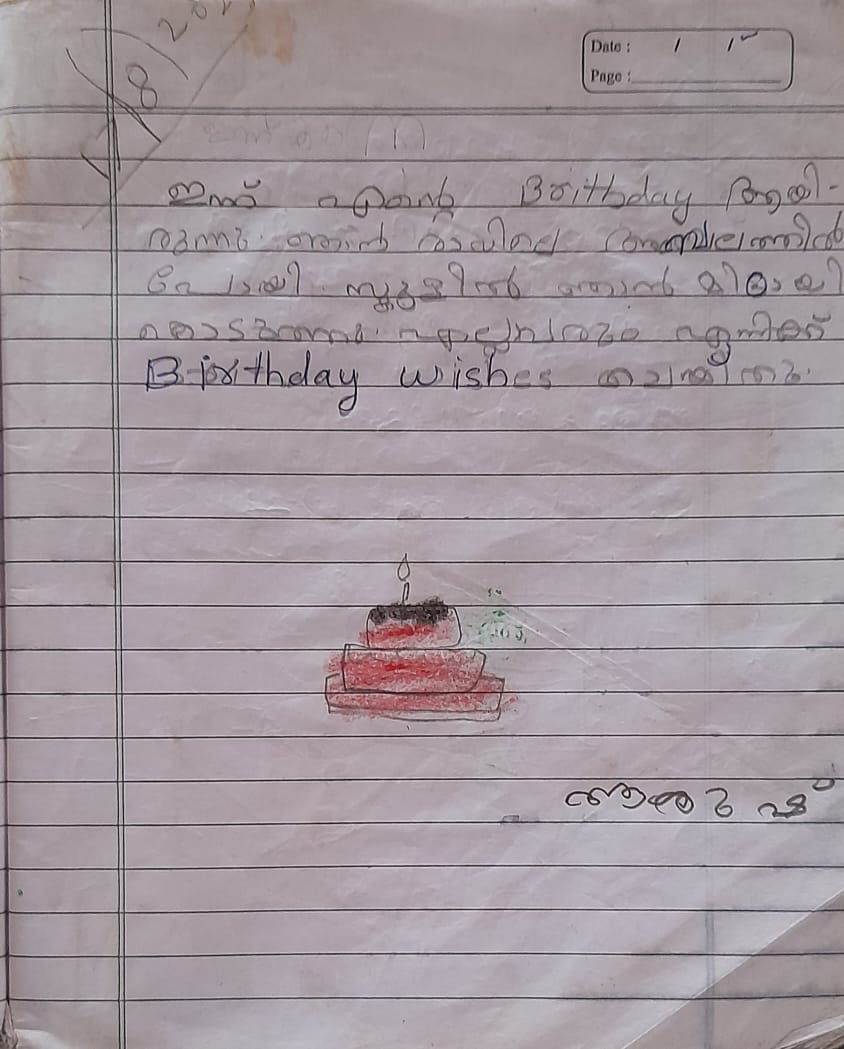 Date :
Page :
ഇന്ന് എന്റെ Birthday ആയി-
രുന്നു. ഞാൻ രാവിലെ അമ്പലത്തിൽ
പോയി. സ്കൂളിൽ ഞാൻ മിഠായി
കൊടുത്തു. എല്ലാവരും എനിക്ക്
Birthday wishes തന്നു.